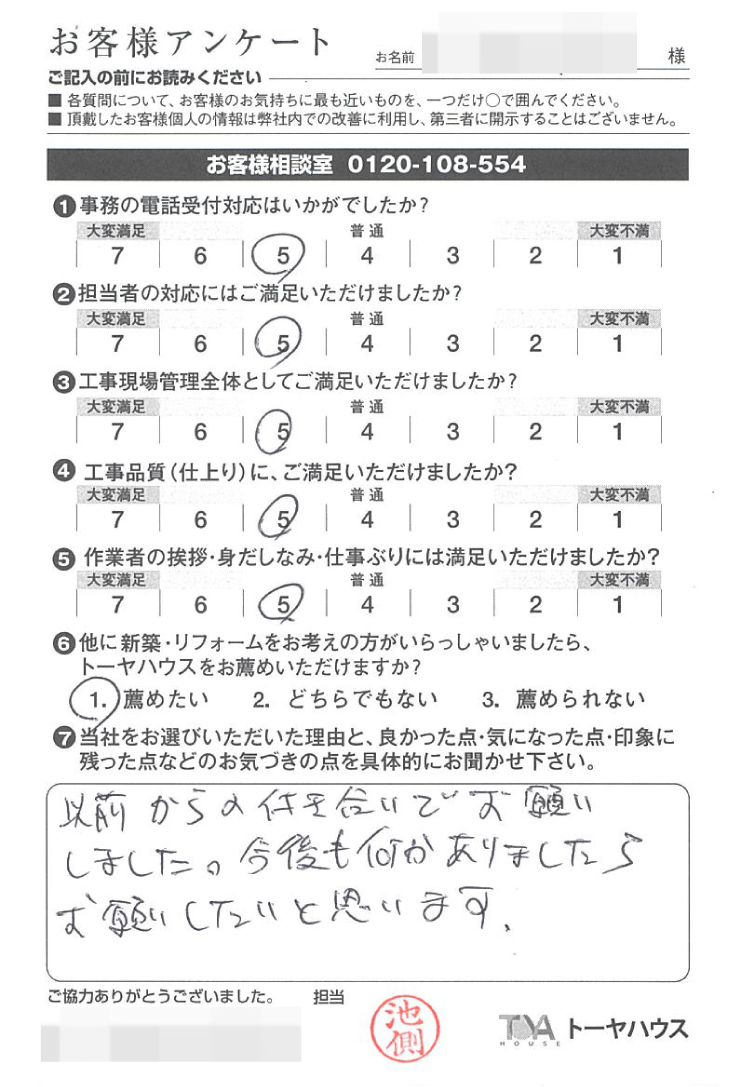 お客様アンケート
お名前 様
ご記入の前にお読みください
■ 各質問について、お客様のお気持ちに最も近いものを、一つだけ○で囲んでください。
■ 頂戴したお客様個人の情報は弊社内での改善に利用し、第三者に開示することはございません。
お客様相談室 0120-108-554
❶ 事務の電話受付対応はいかがでしたか?
大変満足 普通 大変不満
7 6 5 4 3 2 1
❷ 担当者の対応にはご満足いただけましたか?
大変満足 普通 大変不満
7 6 5 4 3 2 1
❸ 工事現場管理全体としてご満足いただけましたか?
大変満足 普通 大変不満
7 6 5 4 3 2 1
❹ 工事品質(仕上り)に、ご満足いただけましたか?
大変満足 普通 大変不満
7 6 5 4 3 2 1
❺ 作業者の挨拶・身だしなみ・仕事ぶりには満足いただけましたか?
大変満足 普通 大変不満
7 6 5 4 3 2 1
❻ 他に新築・リフォームをお考えの方がいらっしゃいましたら、
トーヤハウスをお薦めいただけますか?
1. 薦めたい 2. どちらでもない 3. 薦められない
❼ 当社をお選びいただいた理由と、良かった点・気になった点・印象に
残った点などのお気づきの点を具体的にお聞かせ下さい。
以前からの付き合いでお願い
しました。今後も何かありましたら
お願いしたいと思います。
ご協力ありがとうございました。 担当
池側
TOYA HOUSE トーヤハウス